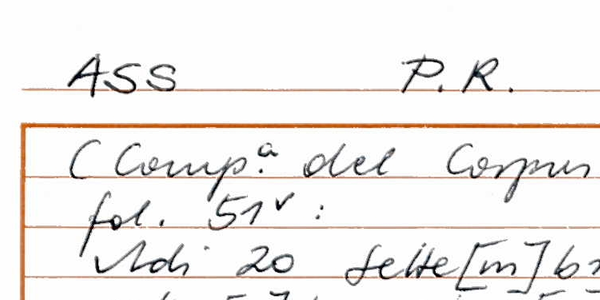 ASS P.R.
(Comp.ª del Corpus
fol. 51v :
Adi 20 sette[m]b